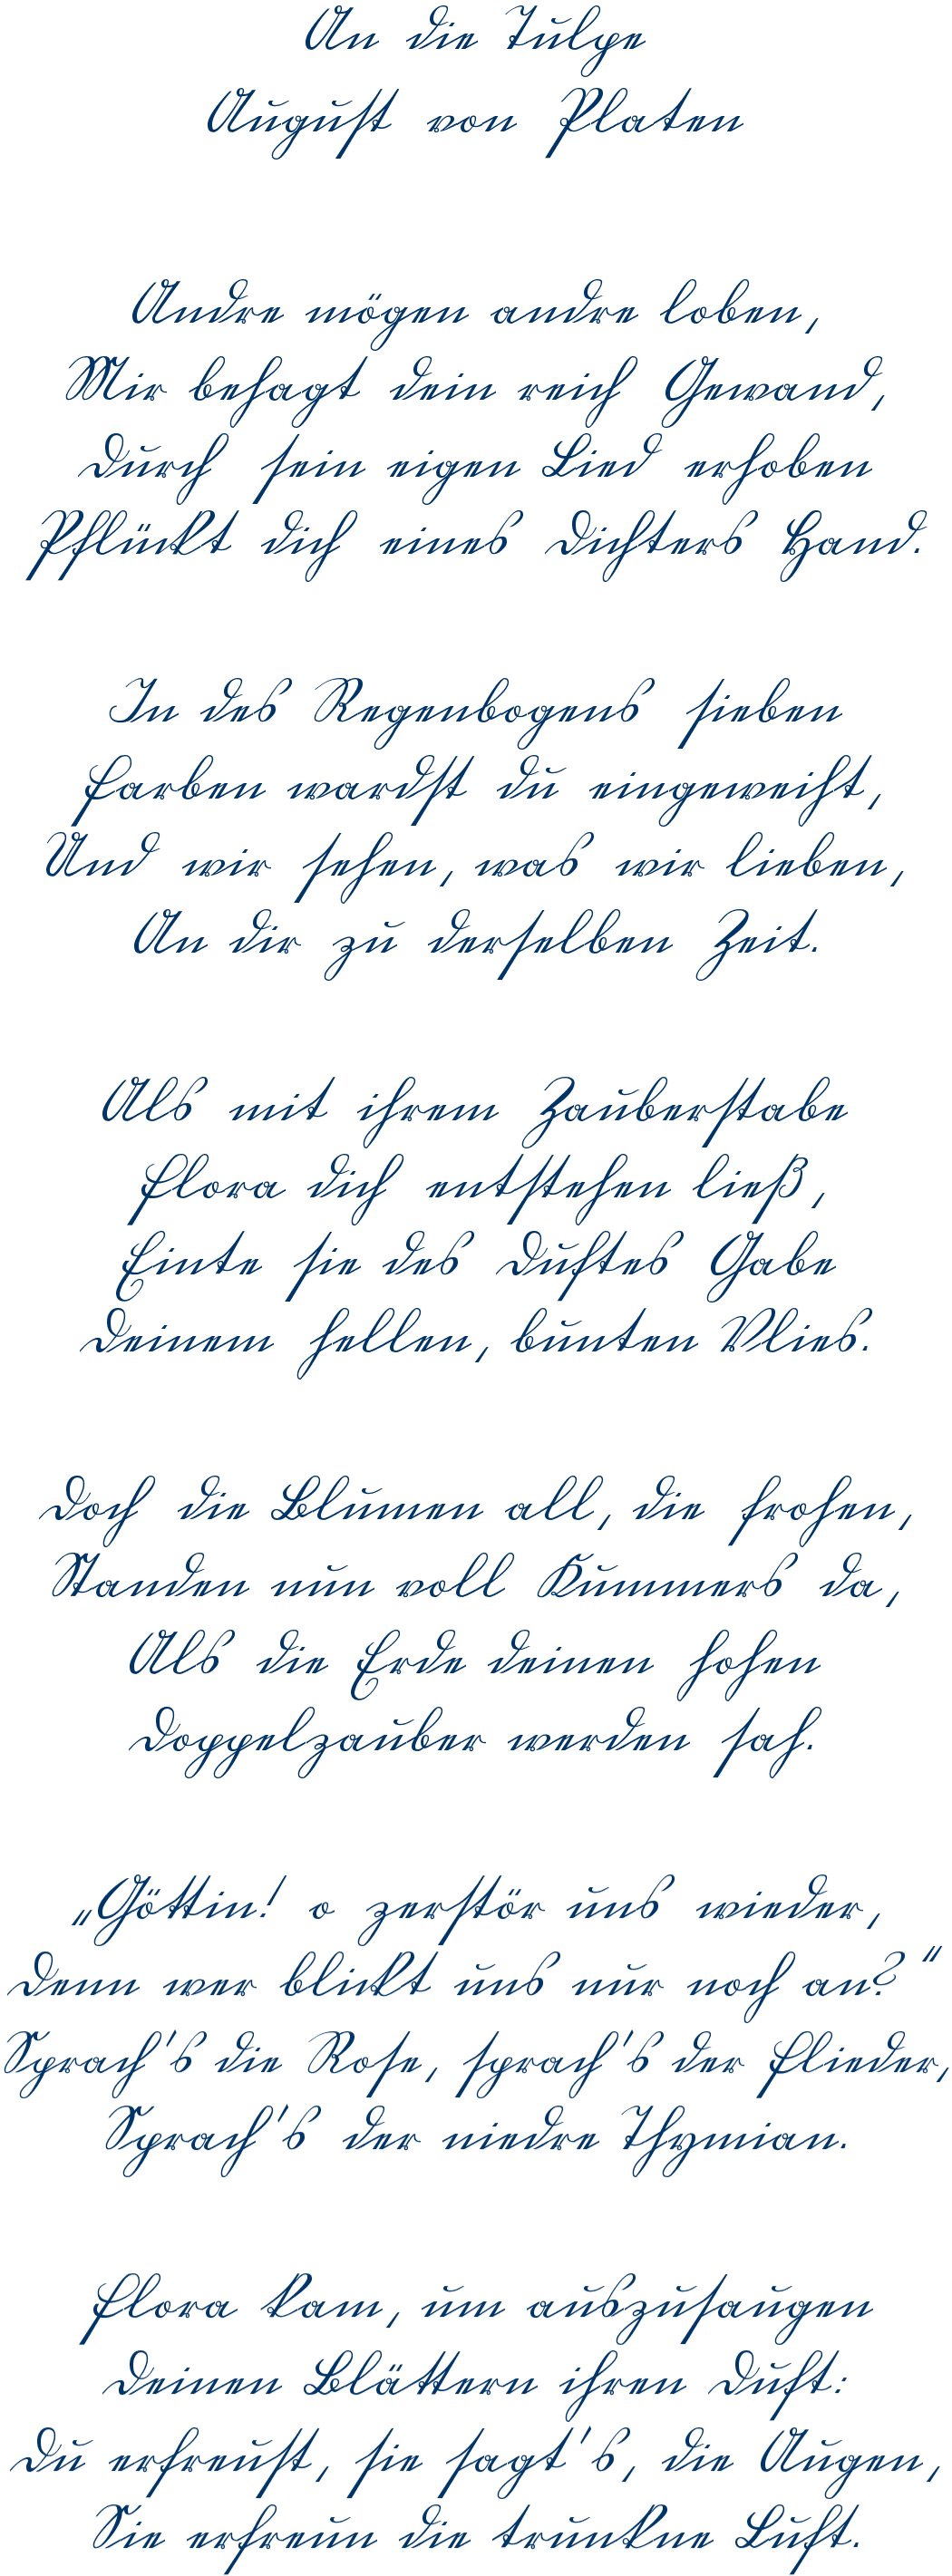 An die Tulpe
August von Platen
Andre mögen andre loben,
Mir behagt dein reich Gewand,
Durch sein eigen Lied erhoben
Pflückt dich eines Dichters Hand.
In des Regenbogens sieben
Farben wardst du eingeweiht,
Und wir sehen, was wir lieben,
An dir zu derselben Zeit.
Als mit ihrem Zauberstabe
Flora dich entstehen ließ,
Einte sie des Duftes Gabe
Deinem hellen, bunten Vlies.
Doch die Blumen all, die frohen,
Standen nun voll Kummers da,
Als die Erde deinen hohen
Doppelzauber werden sah.
„Göttin! o zerstör uns wieder,
Denn wer blickt uns nur noch an?"
Sprach's die Rose, sprach's der Flieder,
Sprach's der niedre Thymian.
Flora kam, um auszusaugen
Deinen Blättern ihren Duft:
Du erfreust, sie sagt's, die Augen,
Sie erfreun die trunkne Luft.